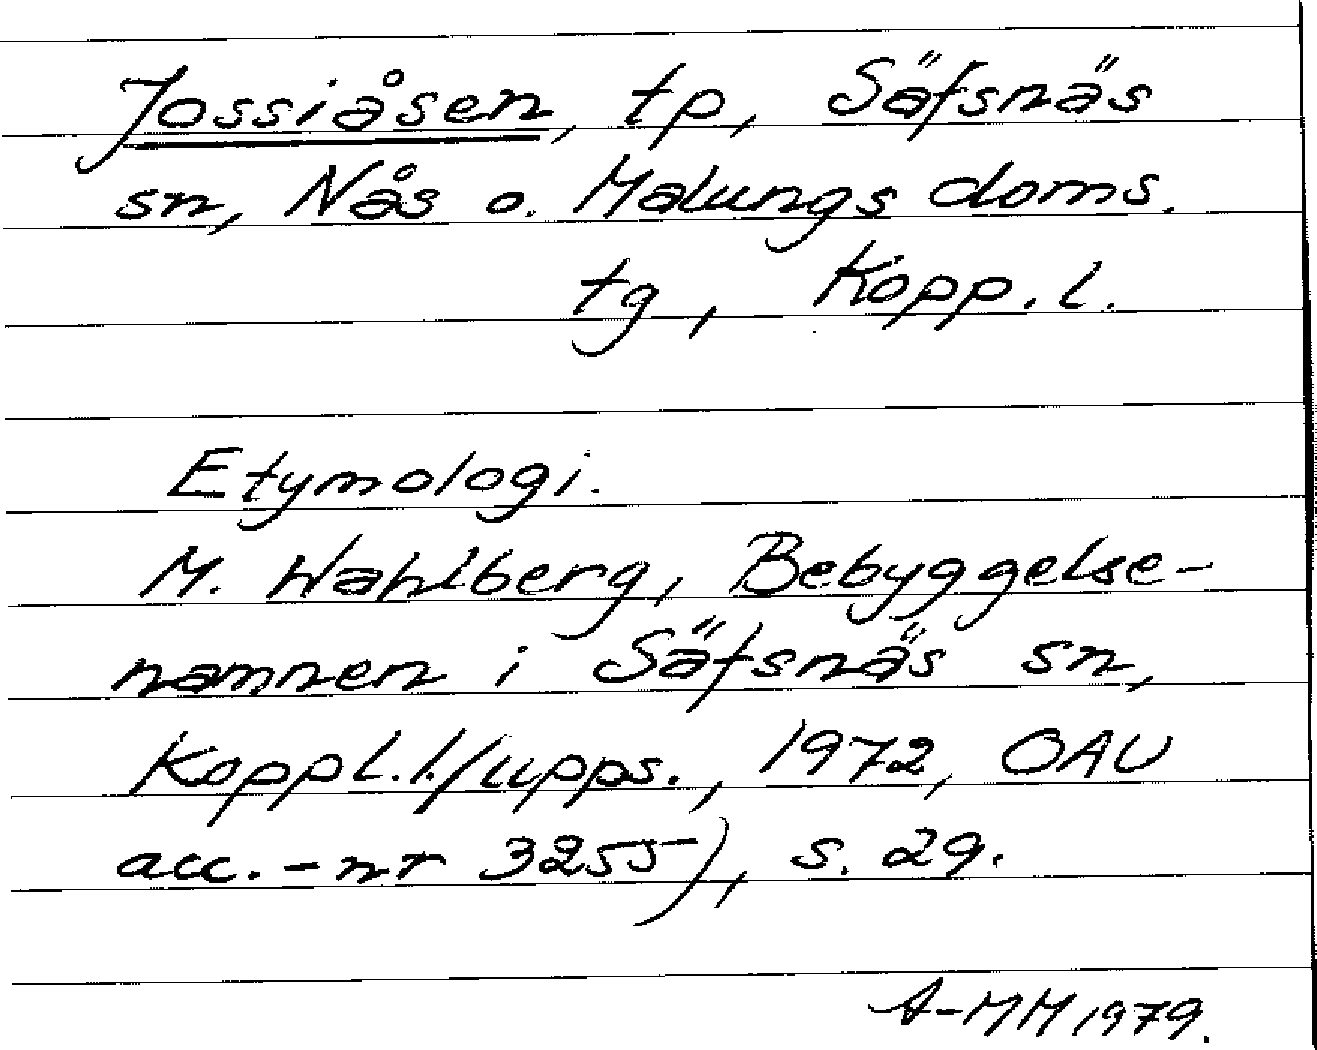 Jossiåsen, tp, Säfsnäs
sn, Nås o. Malungs doms.
tg, Kopp. l.
Etymologi.
M. Wahlberg, Bebyggelse-
namnen i Säfsnäs sn,
Koppl.l./upps., 1972, OAU
acc.-nr 3255), s. 29.
A-MM 1979.